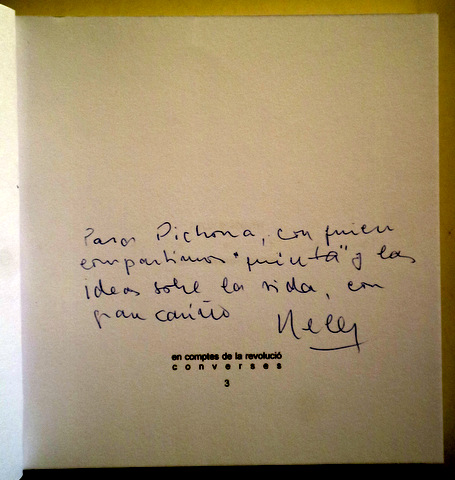 Para Pichona, con quien
compartimos "quinta" y las
ideas sobre la vida, con
gran cariño Nelly
en comptes de la revolució
converses
3